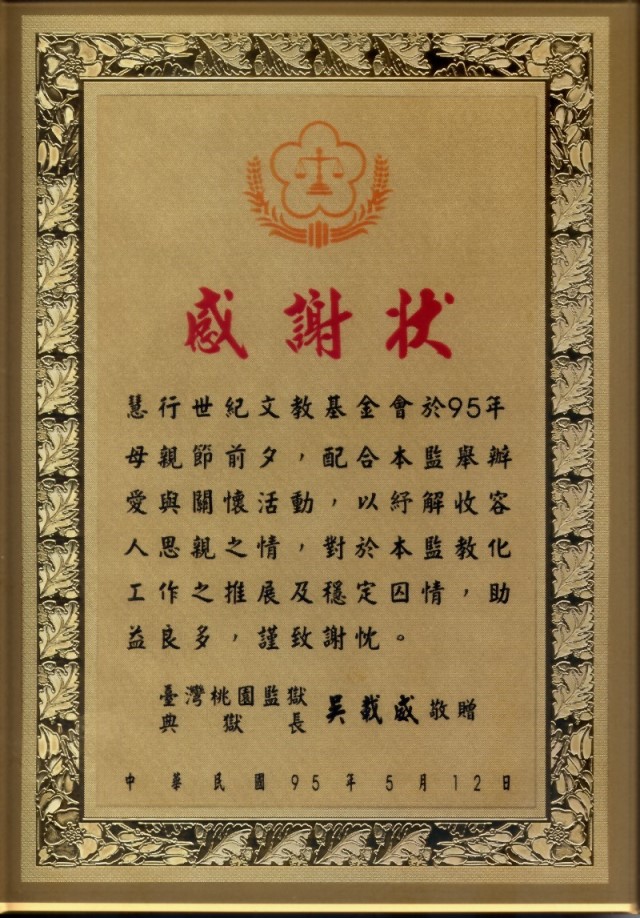 感謝狀
慧行世紀文教基金會於95年
母親節前夕，配合本監舉辦
愛與關懷活動，以紓解收容
人思親之情，對於本監教化
工作之推展及穩定囚情，助
益良多，謹致謝忱。
臺灣桃園監獄
典獄長 吳載威 敬贈
中華民國95年5月12日